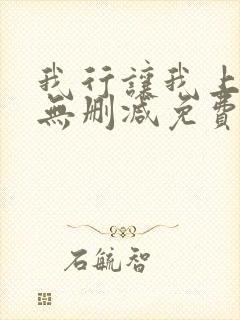 我行讓我上
無刪减免費
石毓智